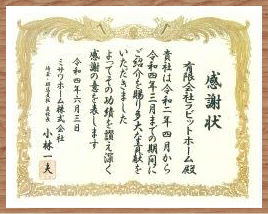 感謝状
有限会社ラビットホーム殿
貴社は令和二年四月から
令和四年三月までの期間に
ご紹介を賜り多大な貢献を
いただきました
よってその功績を讃え深く
感謝の意を表します
令和四年六月三日
ミサワホーム株式会社
埼玉・群馬支社 支社長
小林一夫